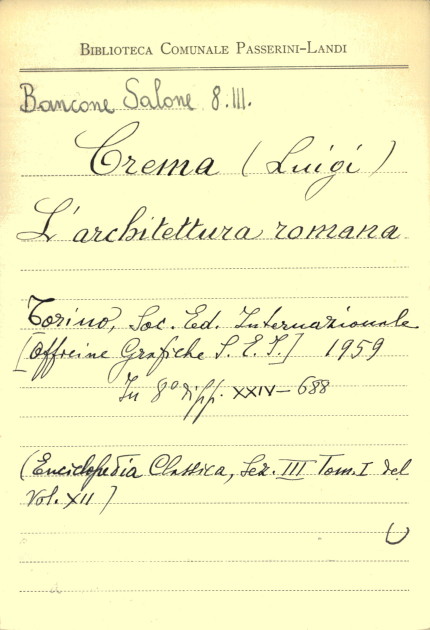 BIBLIOTECA COMUNALE PASSERINI-LANDI
Bancone Salone 8.III.
Crema (Luigi)
L'architettura romana
Torino, Soc. Ed. Internazionale
[Officine Grafiche S. E. I.] 1959
In 8° di pp. XXIV-688
(Enciclopedia Classica, Sez. III Tom. I del
Vol. XII)